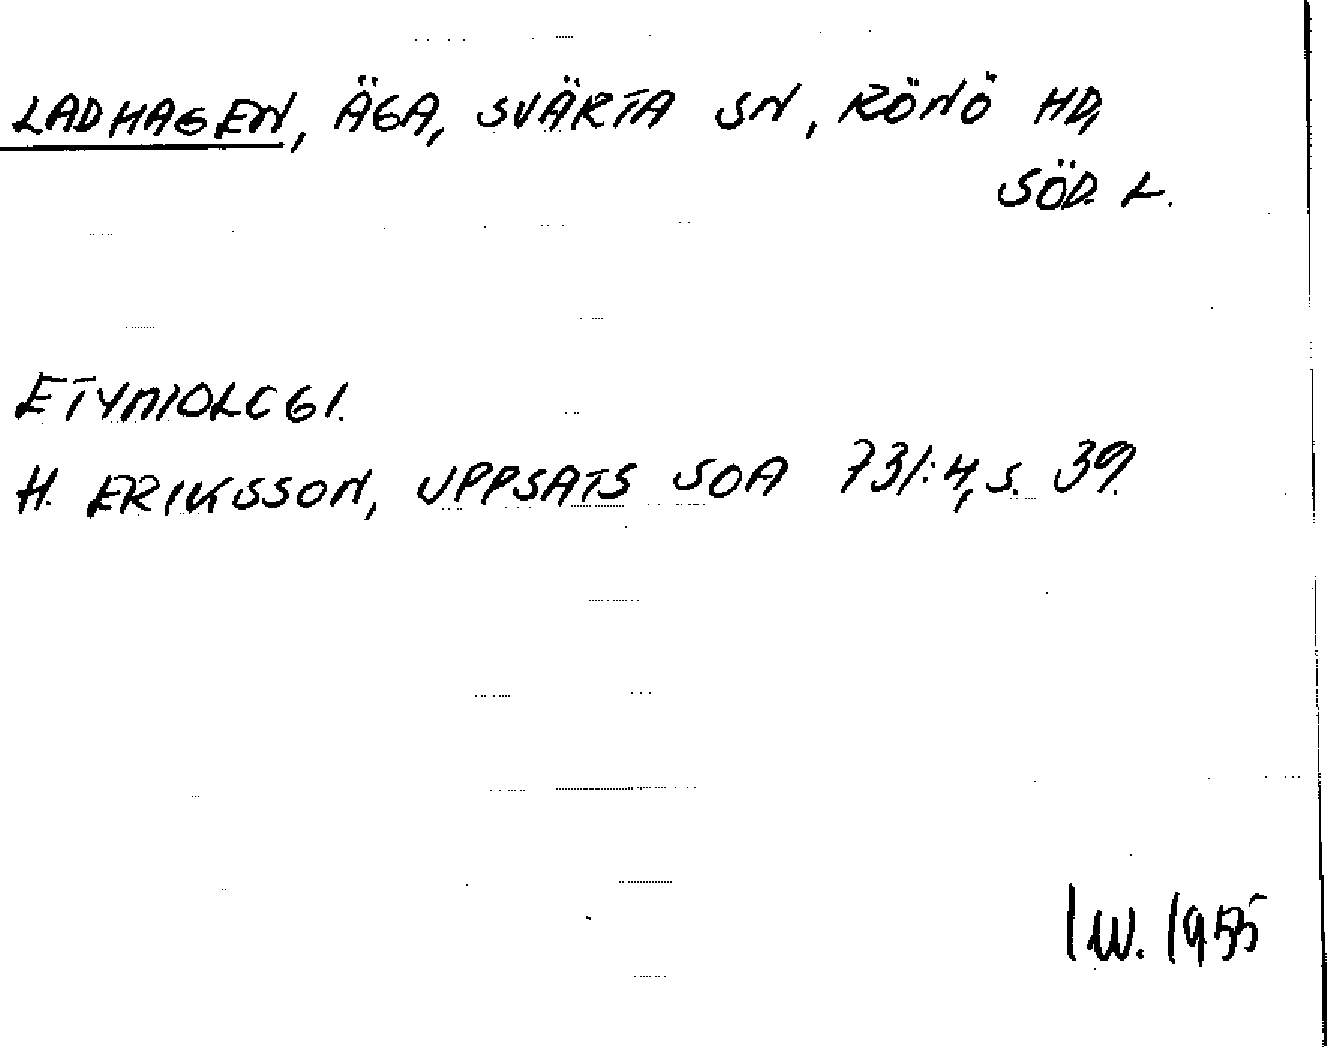 LADHAGEN, ÄGA, SVÄRTA SN, RÖNÖ HD,
SÖD. L.
ETYMOLOGI.
H. ERIKSSON, UPPSATS SOA 731:4, S. 39.
I W. 1955